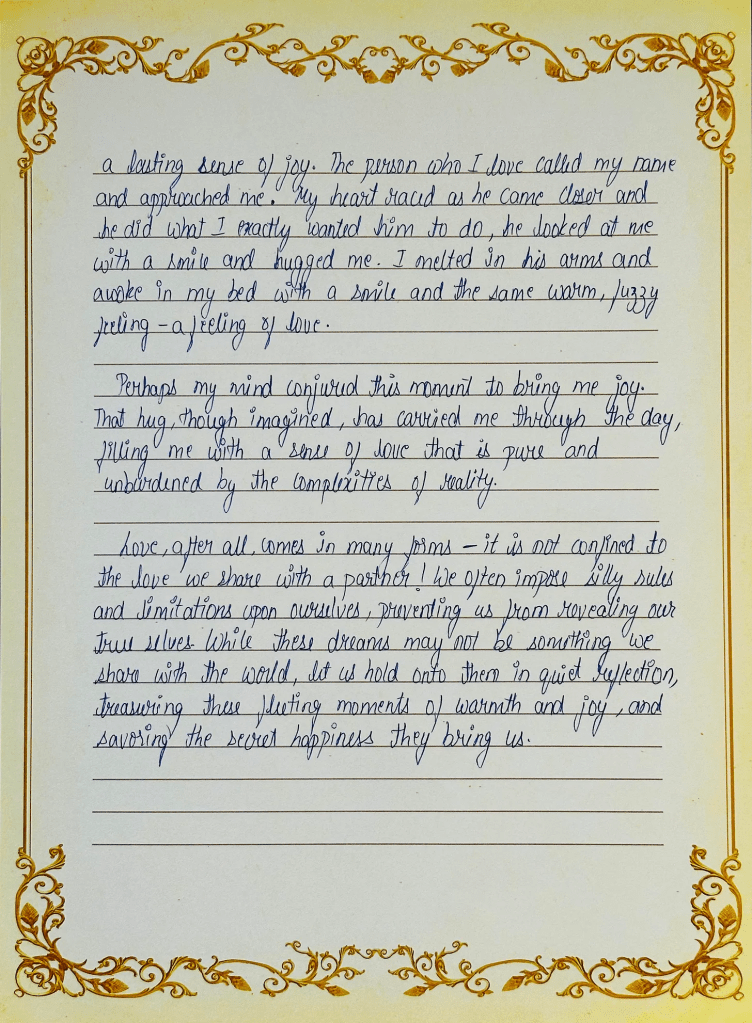 a lasting sense of joy. The person who I love called my name
and approached me. My heart raced as he came closer and
he did what I exactly wanted him to do, he looked at me
with a smile and hugged me. I melted in his arms and
awoke in my bed with a smile and the same warm, fuzzy
feeling - a feeling of love.
Perhaps my mind conjured this moment to bring me joy.
That hug, though imagined, has carried me through the day,
filling me with a sense of love that is pure and
unburdened by the complexities of reality.
Love, after all, comes in many forms - it is not confined to
the love we share with a partner! We often impose silly rules
and limitations upon ourselves, preventing us from revealing our
true selves. While these dreams may not be something we
share with the world, let us hold onto them in quiet reflection,
treasuring these fleeting moments of warmth and joy, and
savoring the secret happiness they bring us.